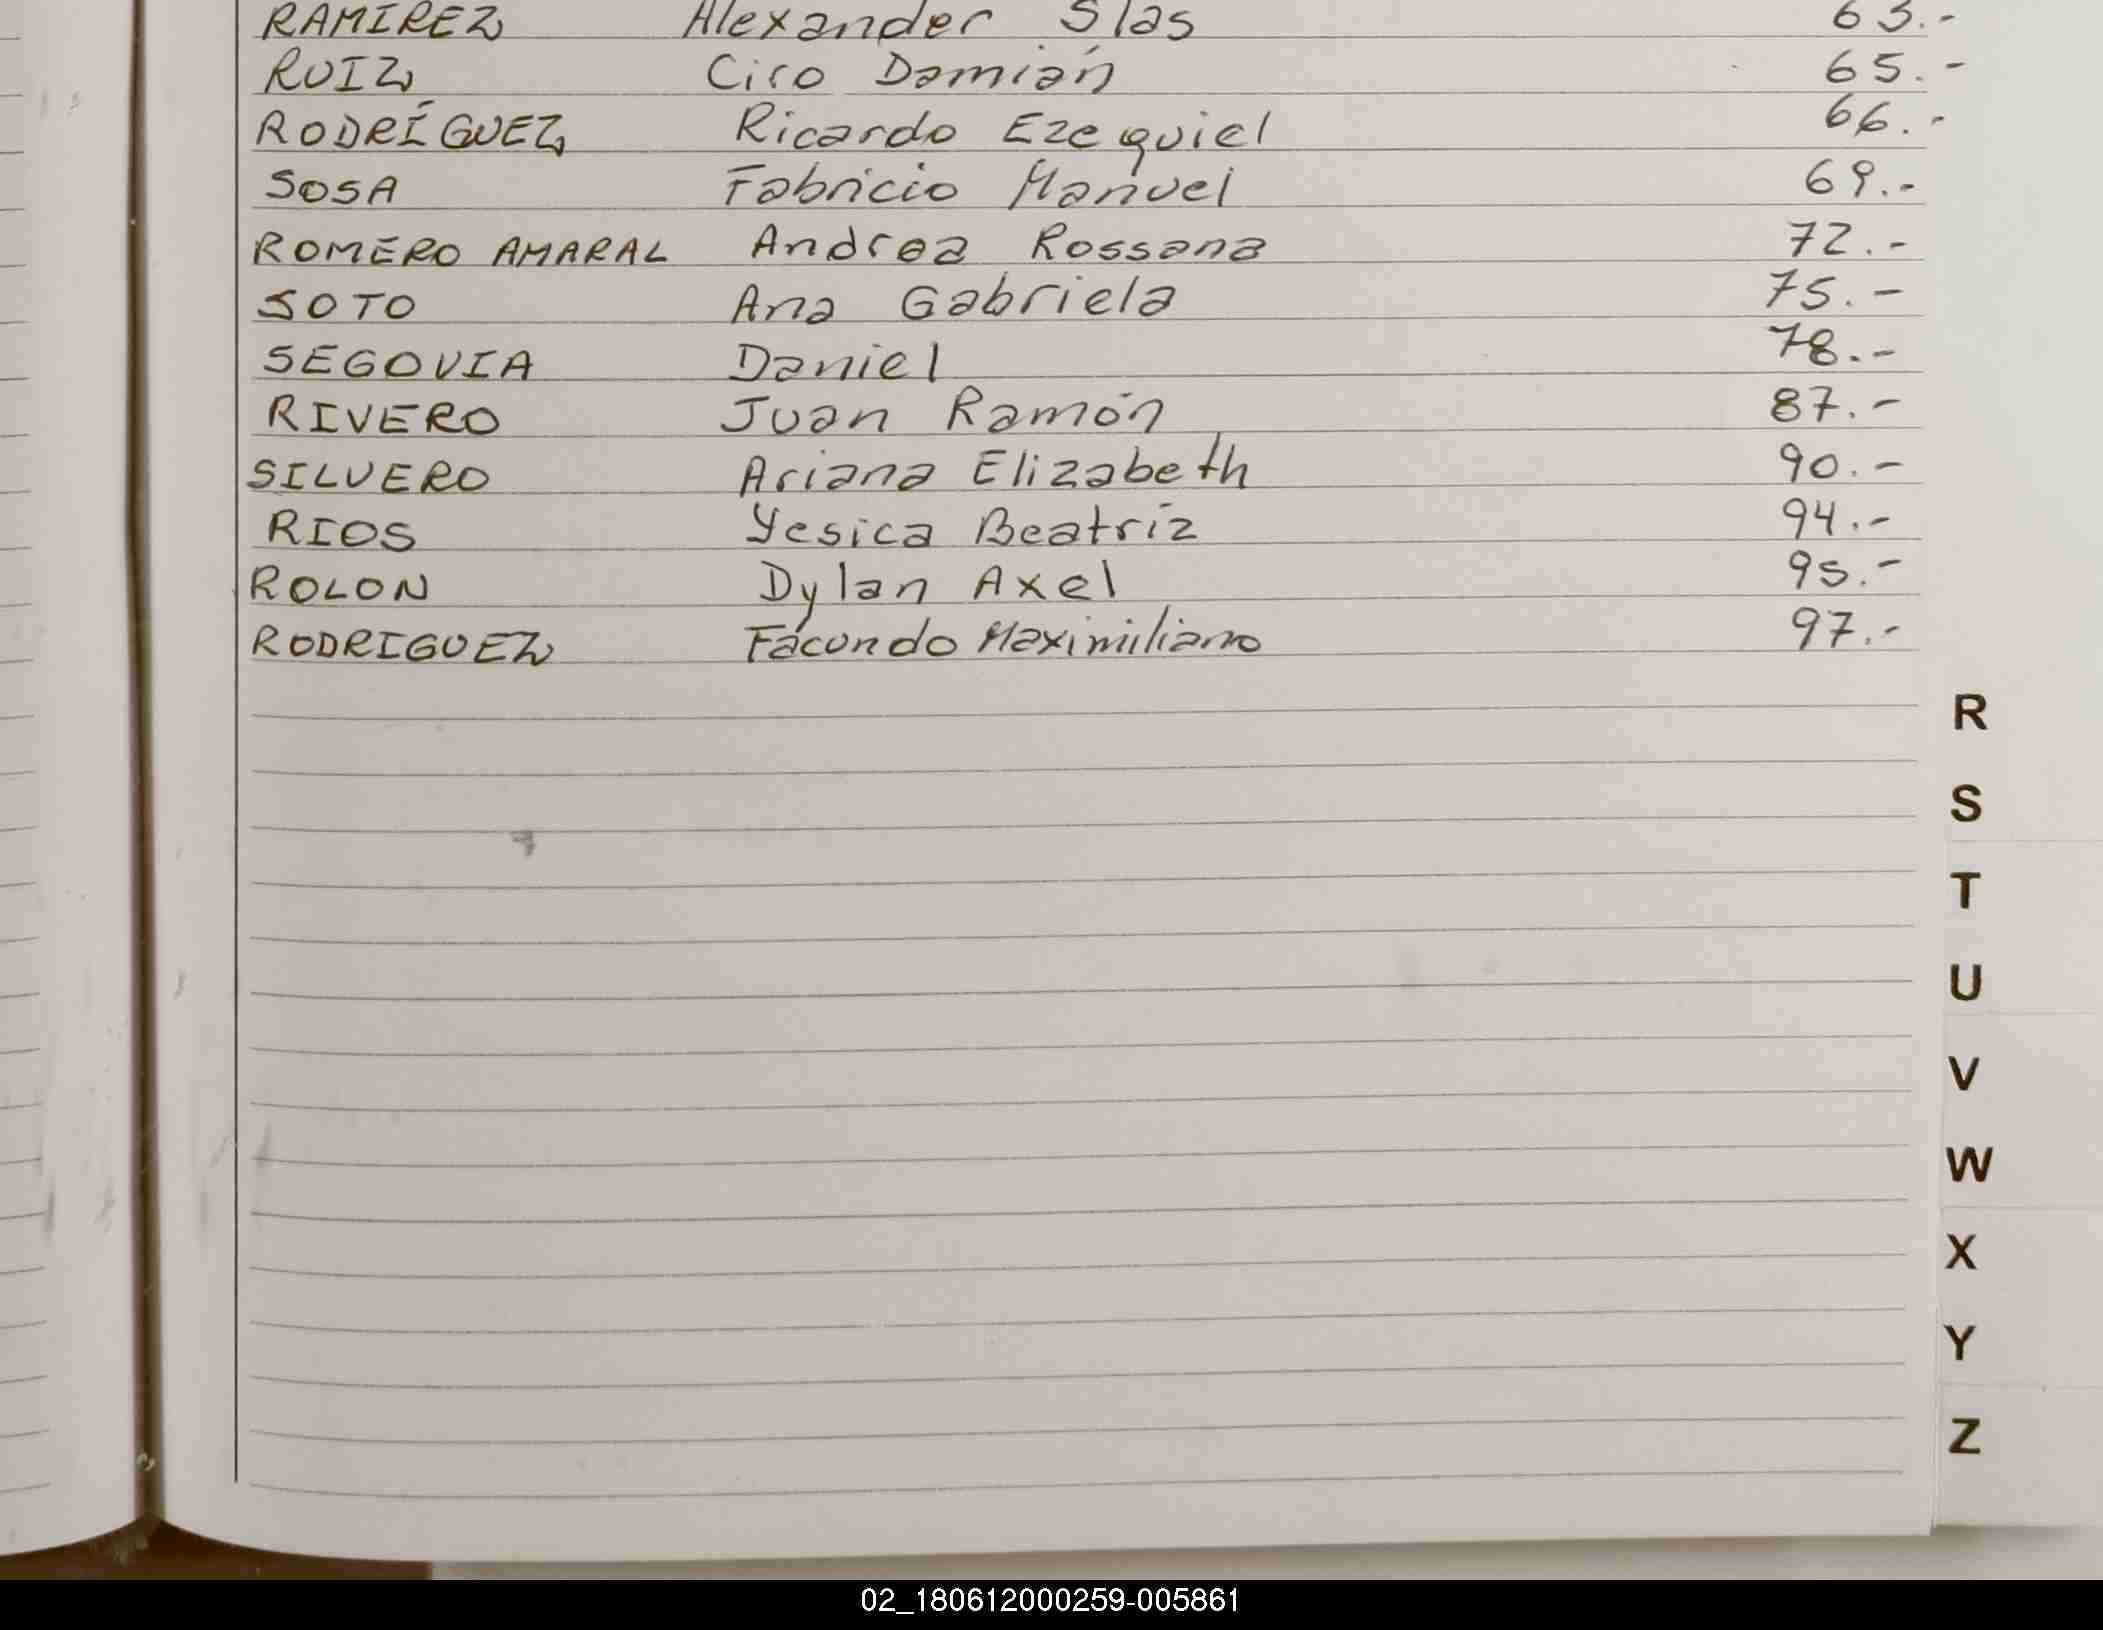 RAMIREZ Alexander Slas 63.-
RUIZ Ciro Damián 65.-
RODRÍGUEZ Ricardo Ezequiel 66.-
SOSA Fabricio Manuel 69.-
ROMERO AMARAL Andrea Rossana 72.-
SOTO Ana Gabriela 75.-
SEGOVIA Daniel 78.-
RIVERO Juan Ramón 87.-
SILVERO Ariana Elizabeth 90.-
RIOS Yesica Beatriz 94.-
ROLON Dylan Axel 95.-
RODRIGUEZ Facundo Maximiliano 97.-
R
S
T
U
V
W
X
Y
Z
02_180612000259-005861